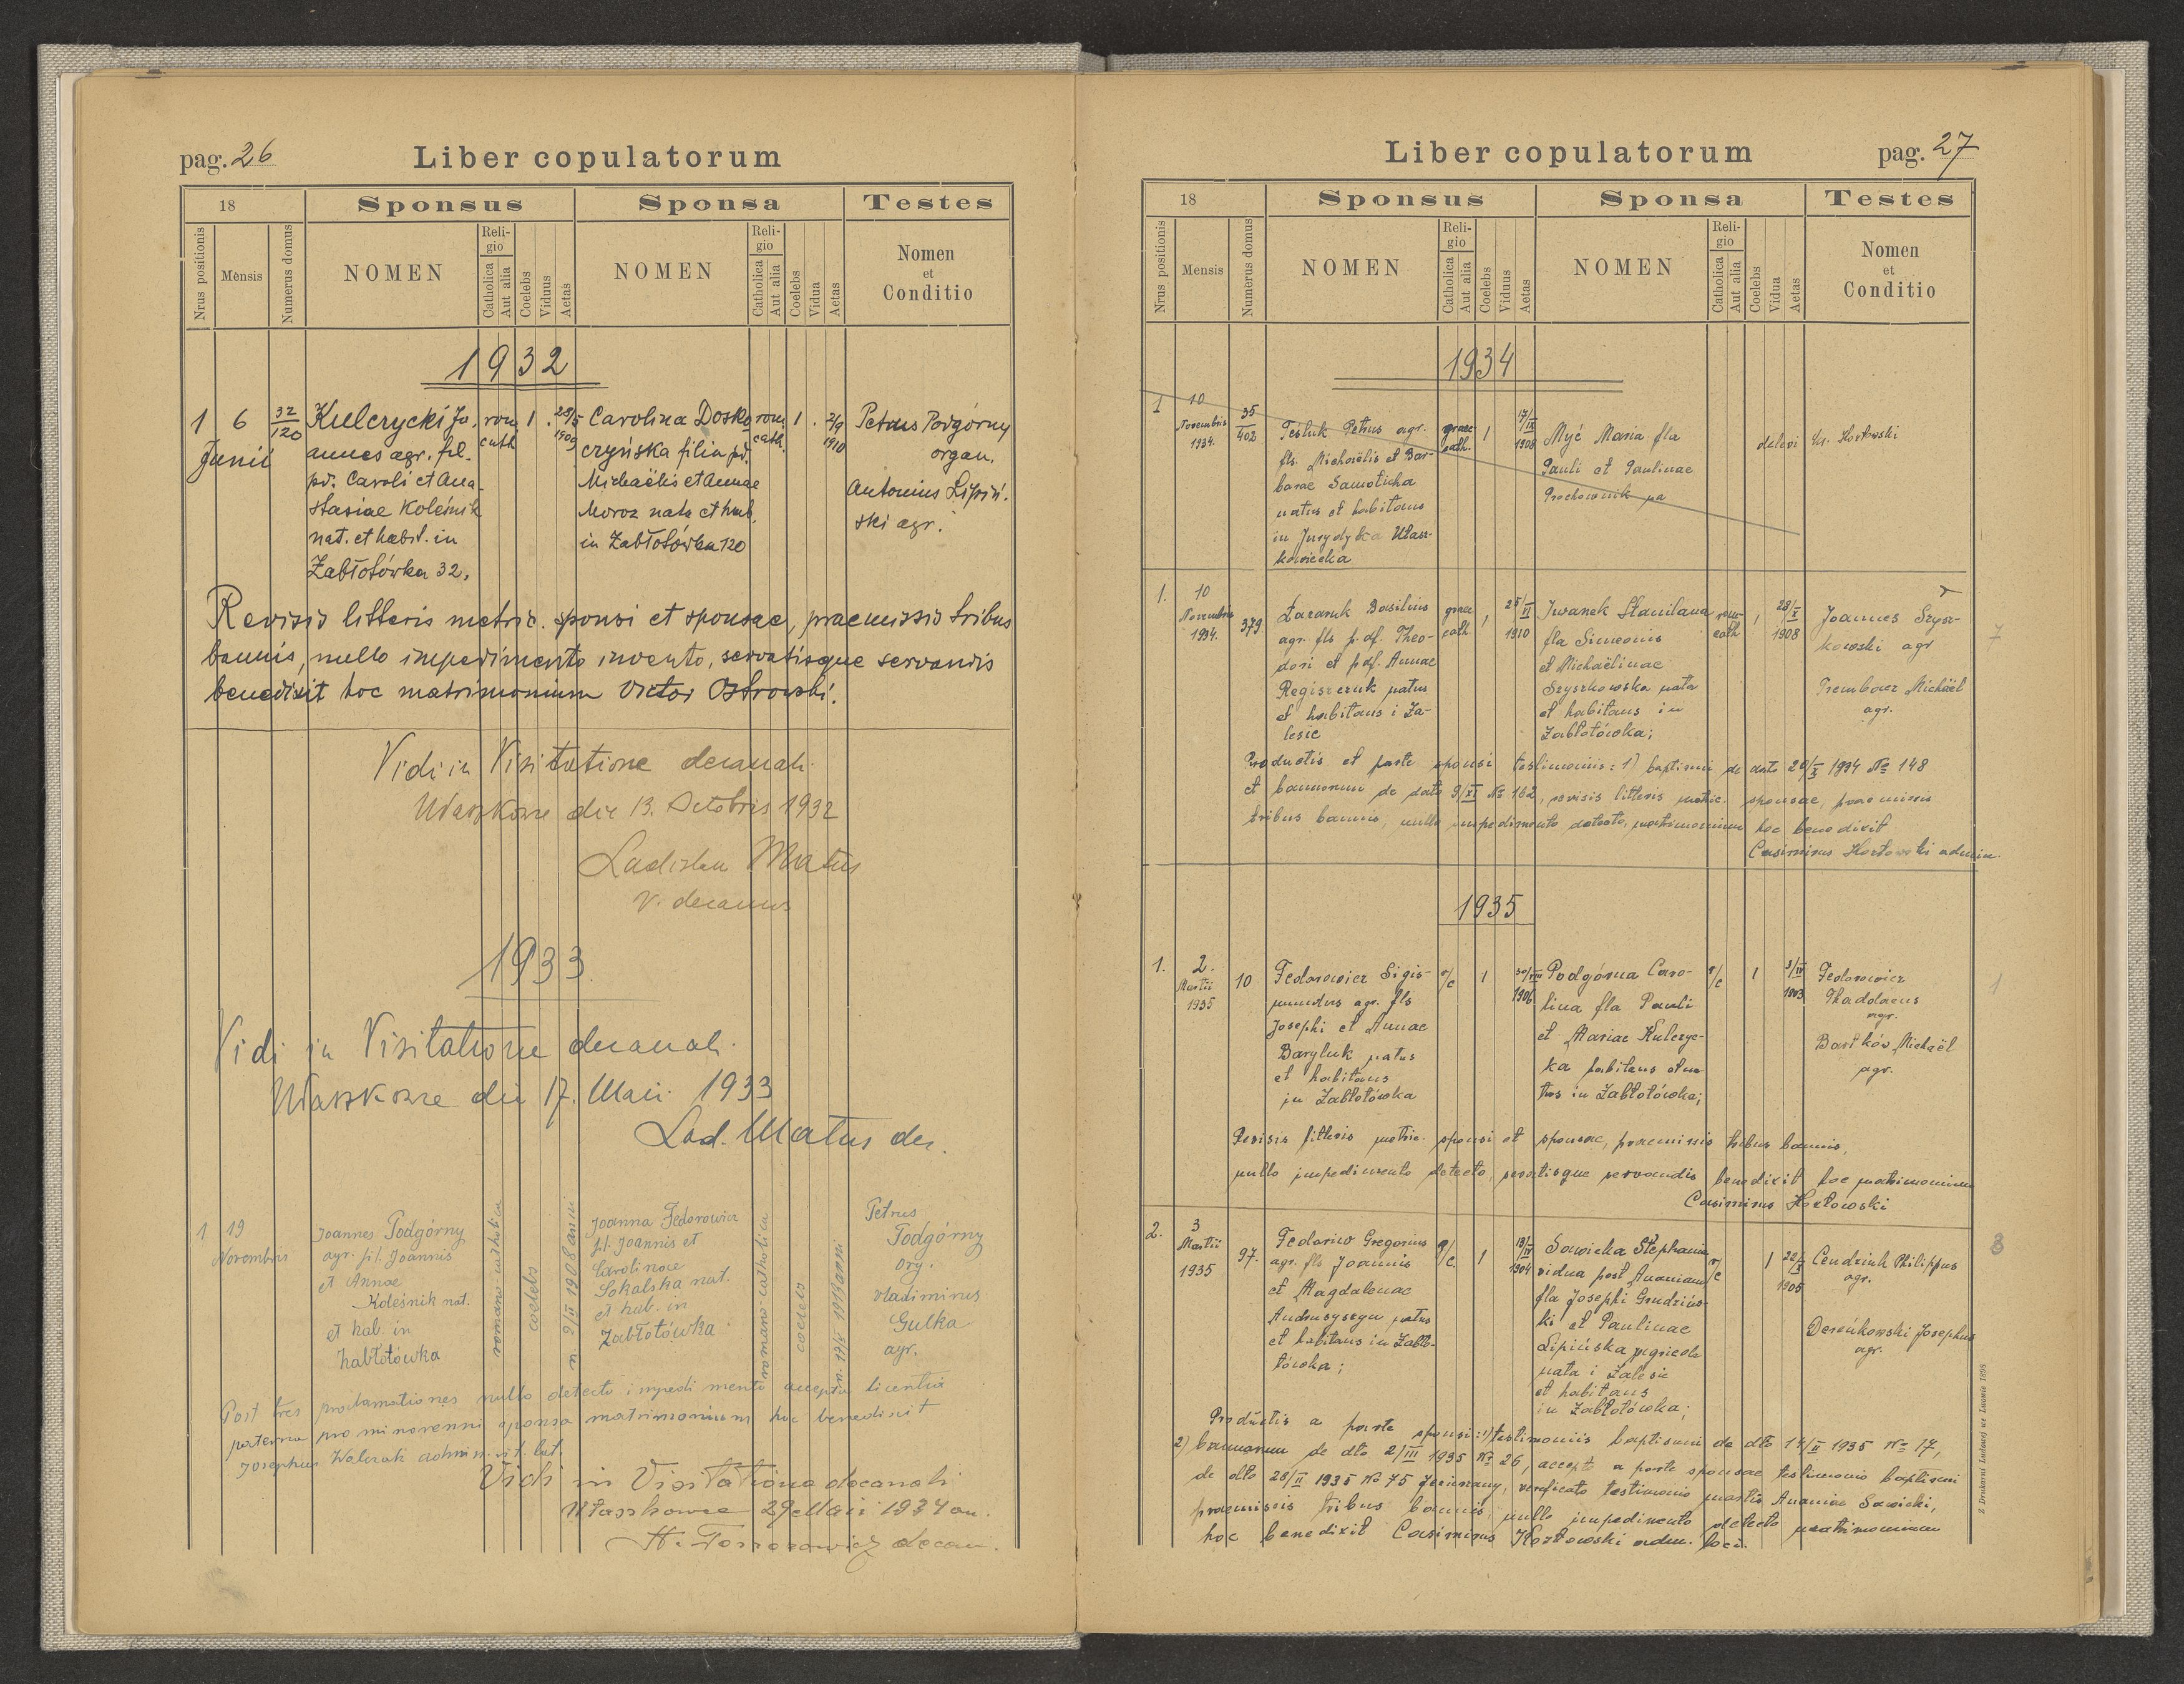 pag. 26
Liber copulatorum
18
Sponsus
Sponsa
Testes
Nrus positionis
Mensis
Numerus domus
NOMEN
Reli-
gio
Catholica
Aut alia
Coelebs
Viduus
Aetas
NOMEN
Reli-
gio
Catholica
Aut alia
Coelebs
Vidua
Aetas
Nomen
et
Conditio
1932
1
6
Junii
32
120
Kulczycki Jo
annes agr. fil.
pd. Caroli et Ana-
stasiae Koleśnik
nat. et habit. in
Zabłotówka 32.
rom
cath
1
28/5
1909
Carolina Dosko
czyńska filia pd.
Michaëlis et Annae
Moroz nata et hab.
in Zabłotówka 120
rom.
cath.
1
2/9
1910
Petrus Podgórny
organ.
Antonius Lipiń-
ski agr.
Revisis litteris metric. sponsi et sponsae, praemissis tribus
bannis, nullo impedimento invento, servatisque servandis
benedixit hoc matrimonium Victor Ostrowski.
Vidi in Visitatione decanali
Ułaszkowce die 13. Octobris 1932
Ladislau Matus
v. decanus
1933
Vidi in Visitatione decanali.
Ułaszkowce die 17. Maii 1933
Lad. Matus dec.
1
19
Novembris
Joannes Podgórny
agr. fil. Joannis
et Annae
Koleśnik nat.
et hab. in
Zabłotówka
romano-catholica
coelebs
n. 2/II 1908 anni
Joanna Fedorowicz
fil. Joannis et
Carolinae
Sokalska nat.
et hab. in
Zabłotówka
romano-catholica
coelebs
Petrus
Podgórny
org.
Vladimirus
Gulka
agr.
Post tres proclamationes nullo detecto impedimento accepta licentia
paterna pro minorenni sponsa matrimonium hoc benedixit
Josephus Walczak administ. lat.
Vidi in Visitatione decanali
Ułaszkowce 29 Maii 1934 an.
decan.
Liber copulatorum
pag. 27
18
Sponsus
Sponsa
Testes
Nrus positionis
Mensis
Numerus domus
NOMEN
Reli-
gio
Catholica
Aut alia
Coelebs
Viduus
Aetas
NOMEN
Reli-
gio
Catholica
Aut alia
Coelebs
Vidua
Aetas
Nomen
et
Conditio
1934
1
10
Novembris
1934.
35
402
Teśluk Petrus agr.
fls. Michaëlis et Bar-
barae Samoticha
natus et habitans
in Jurydyka Ułasz-
kowiecka
graec
cath.
1
17/IX
1908
Myć Maria fla
Pauli et Paulinae
Prochownik na
delevi
Kortowski
1.
10
Novembris
1934.
379
Łazaruk Basilius
agr. fls p. df. Theo-
dori et p df. Annae
Regiszczuk natus
et habitans i Za-
lesie
graec
cath
1
25/VI
1910
Iwanek Stanilaua
fla Simeonis
et Michaëlinae
Szyszkowska nata
et habitans in
Zabłotówka;
rom
cath
1
28/X
1908
Joannes Szysz-
kowski agr
Trembacz Michaël
agr.
7
Productis et parte sponsi testimoniis: 1) baptismi de dato 20/X 1934 No 148
et bannorum de dato 9/XI No 162, revisis litteris metric. sponsae, praemissis
tribus bannis, nullo impedimento detecto, matrimonium hoc benedixit
Casimirus Kortowski admin.
1935
1.
2.
Martii
1935
10
Fedorowicz Sigis-
mundus agr. fls
Josephi et Annae
Baryluk natus
et habitans
in Zabłotówka
r/c
1
30/VIII
1906
Podgórna Caro-
lina fla Pauli
et Mariae Kulczyc-
ka habitans et na
tus in Zabłotówka;
r/c
1
3/IV
1903
Fedorowicz
Thaddaeus
agr.
Bartków Michaël
agr.
1
Revisis litteris metric. sponsi et sponsae, praemissis tribus bannis,
nullo impedimento detecto, servatisque servandis benedixit hoc matrimonium
Casimirus Kortowski
2.
3
Martii
1935
97.
Fedoriw Gregorius
agr. fls Joannis
et Magdalenae
natus
et habitans in Zabło-
tówka;
g/c.
1
1904
Sawicka Stephania
vidua post Ananiam
fla Josephi Grudziń-
ski et Paulinae
Lipińska agricola
nata i Zalesie
et habitans
in Zabłotówka;
r/c
1
22/X
1905
Cendziuk Philippus
agr.
Dereńkowski Josephus
agr.
3
Productis a parte sponsi: 1) testimoniis baptismi de dto 14/II 1935 No 17,
2) bannorum de dto 2/III 1935 No 26, accepto a parte sponsae testimonio baptismi
de dto 28/II 1935 No 75 Jezierzany, verificato testimonio mortis Ananiae Sawicki,
praemissis tribus bannis, nullo impedimento detecto matrimonium
hoc benedixit Casimirus Kortowski adm. loci.
Z Drukarni Ludowej we Lwowie 1898